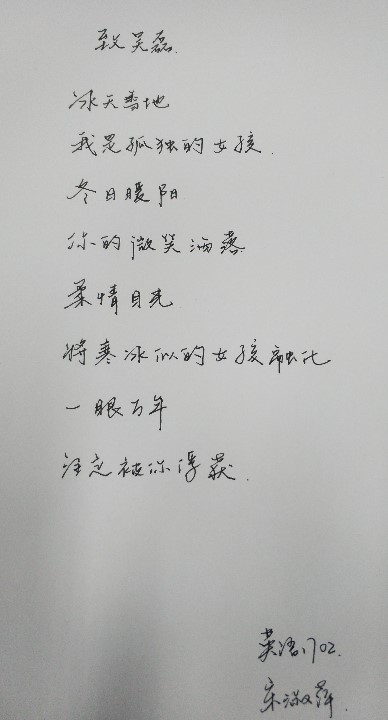 致吴磊.
冰天雪地
我是孤独的女孩.
冬日暖阳
你的微笑洒落
柔情目光
将寒冰似的女孩融化
一眼万年
注定被你俘获.
英语1702.
宋淑萍.